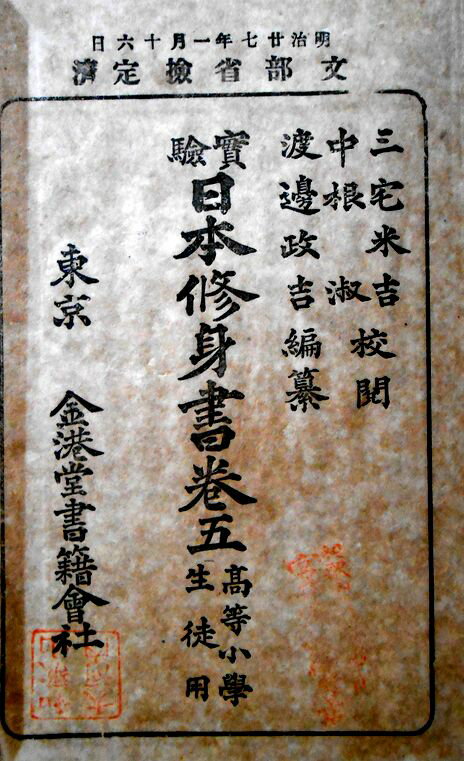 明治廿七年一月十六日
文部省檢定濟
三宅米吉
中根淑
校閲
渡邊政吉編纂
實驗
日本修身書卷五
高等小學
生徒用
東京
金港堂書籍會社